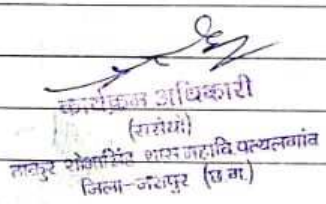 कार्यक्रम अधिकारी
(रासेयो)
ठाकुर शोभासिंह शास महावि पत्थलगांव
जिला-जशपुर (छ ग.)